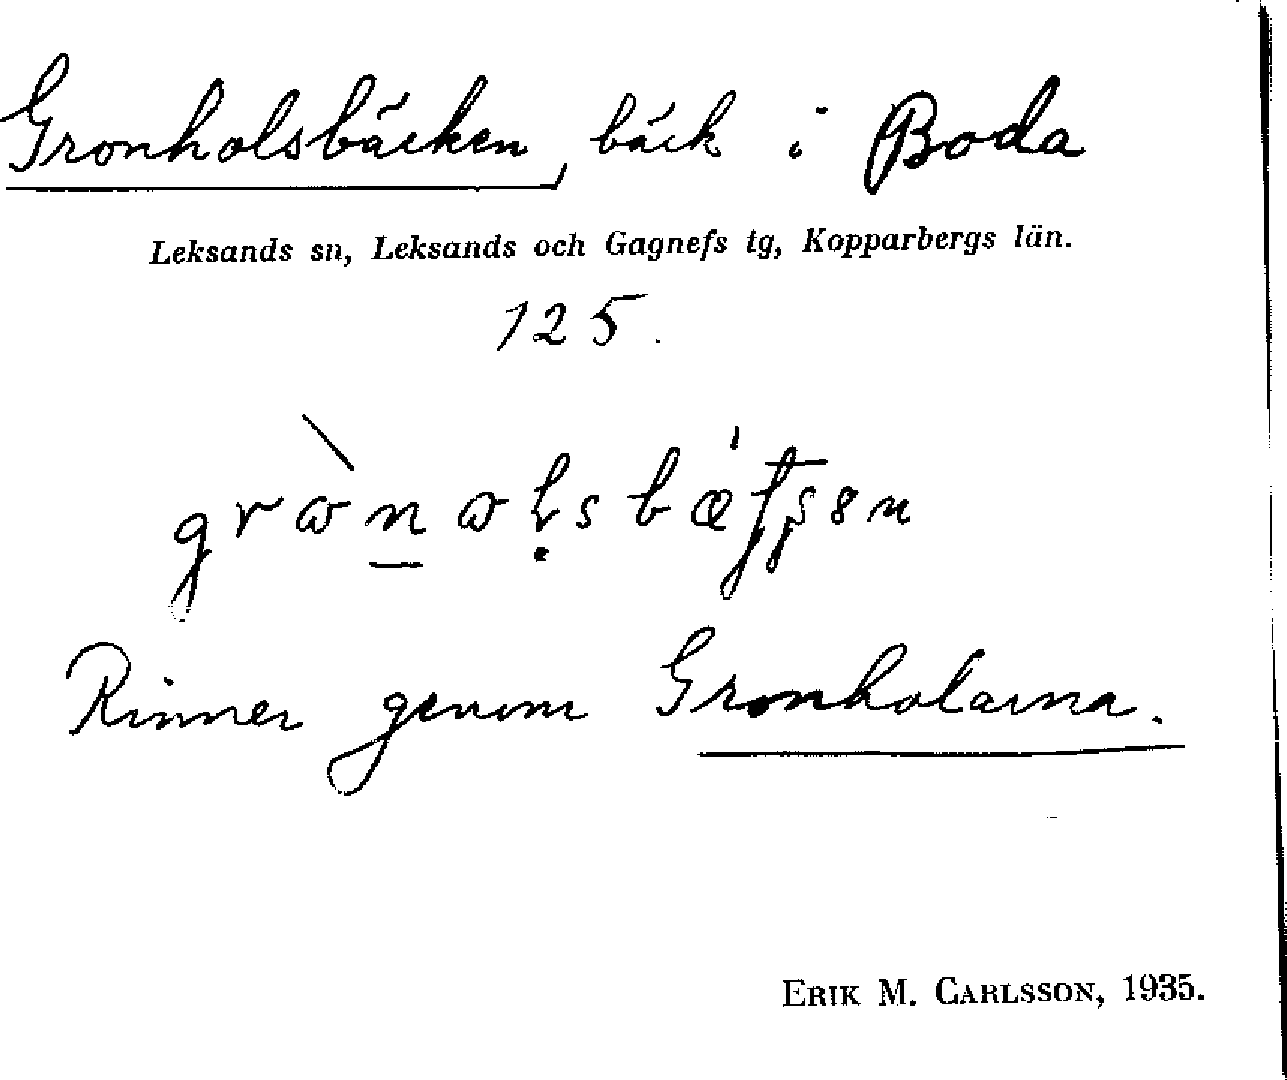 Gronholsbäcken, bäck i Boda
Leksands sn, Leksands och Gagnefs tg, Kopparbergs län.
125.
Rinner genom Gronholarna.
ERIK M. CARLSSON, 1935.